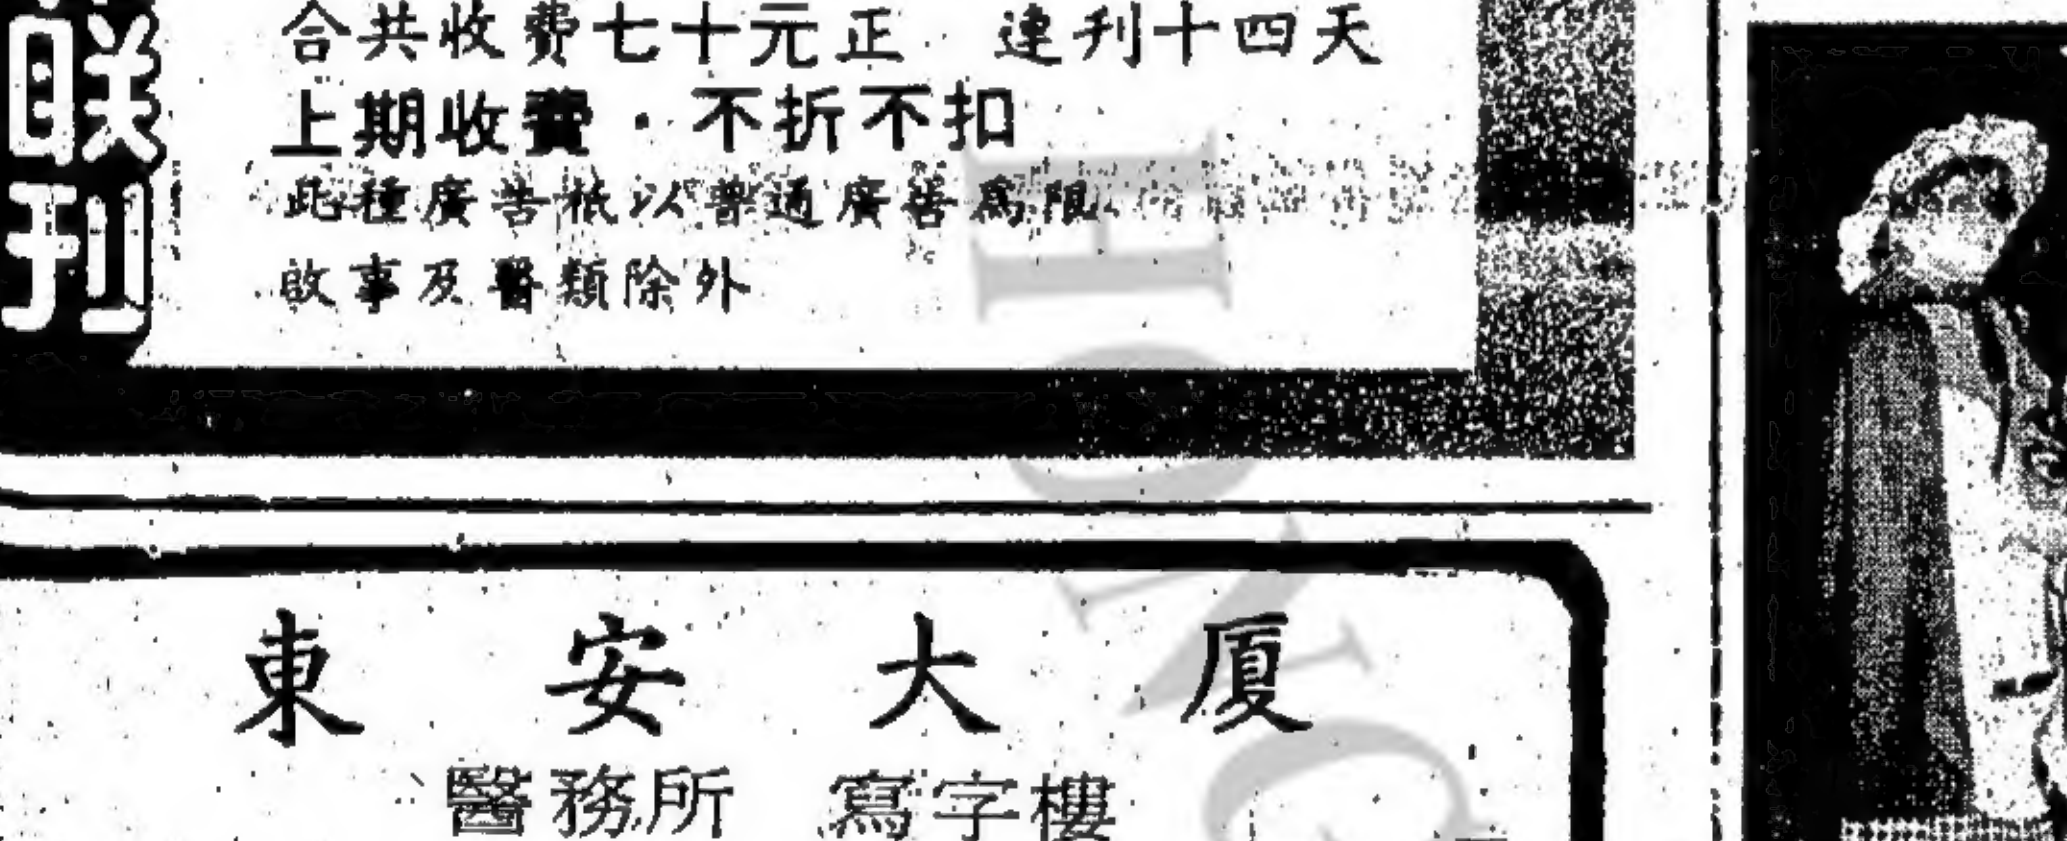 联刊
合共收費七十元正 連刋十四天
上期收費・不折不扣
此種廣告祇以普通廣告為限
啟事及醫類除外
東安大厦
醫務所 寫字樓